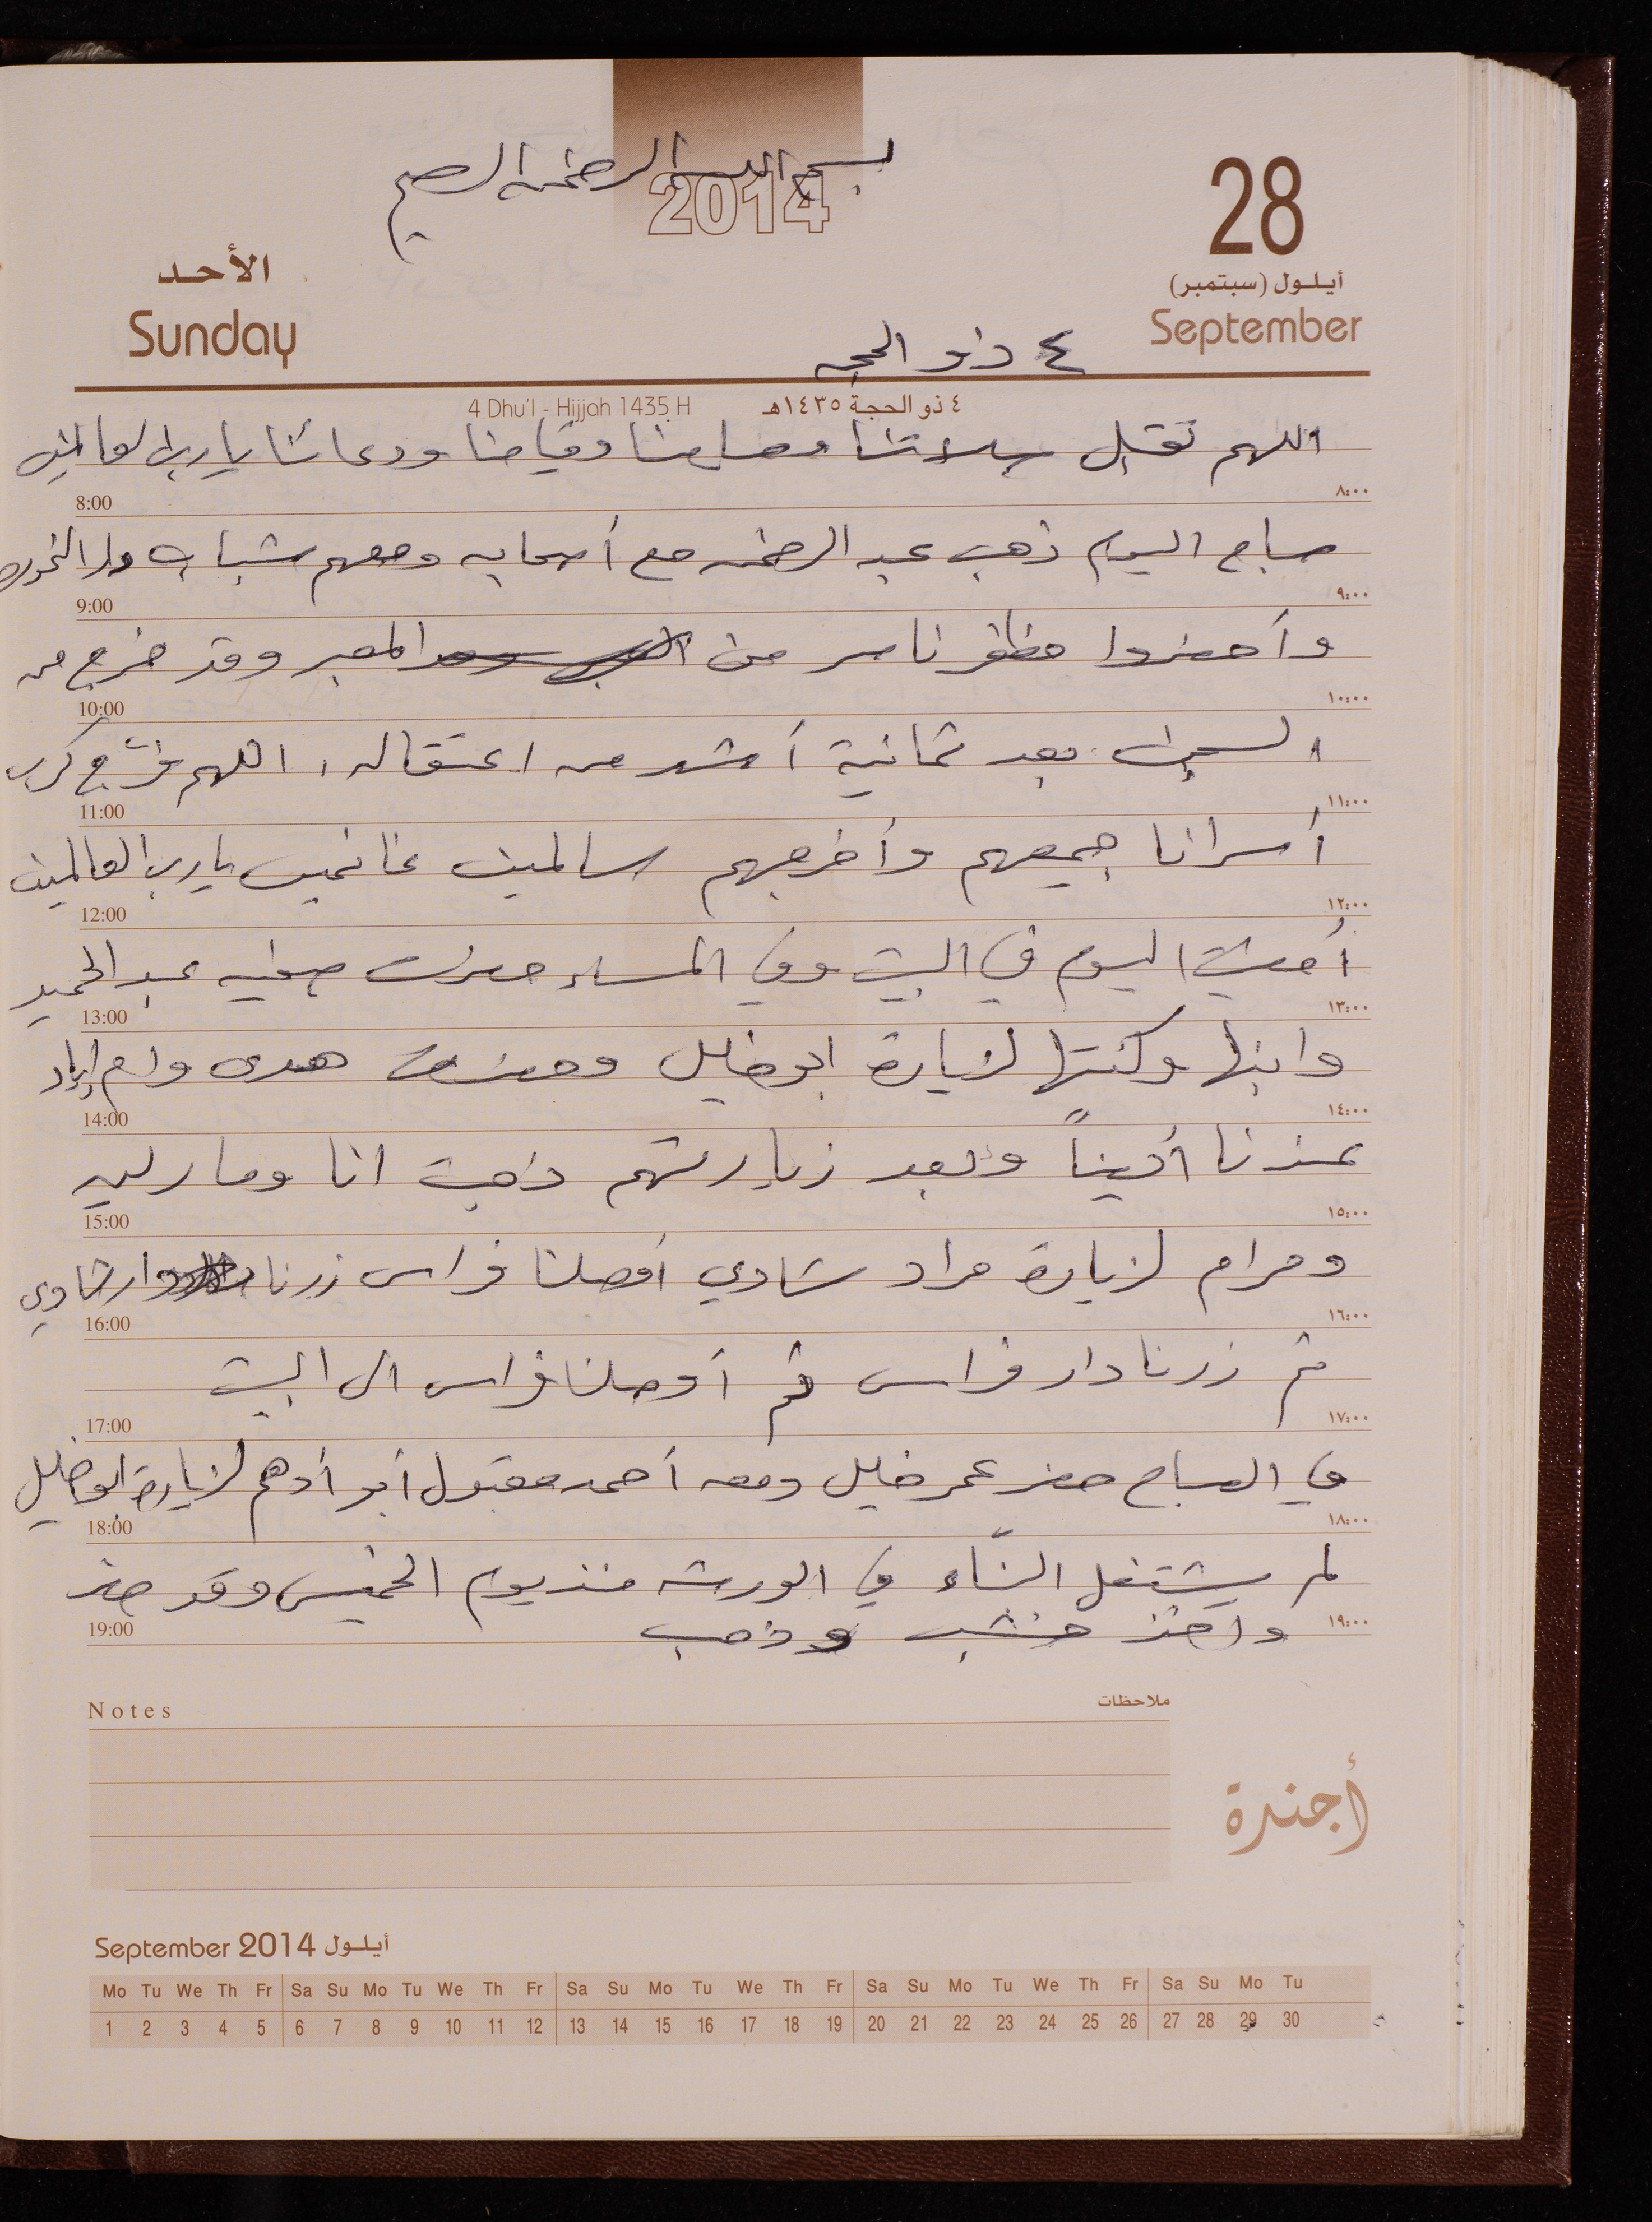 بسم الله الرحمن الرحيم
2014
28
أيلول (سبتمبر)
September
الأحد
Sunday
٤ ذو الحجه
4 Dhu'l - Hijjah 1435 H ٤ ذو الحجة ١٤٣٥هـ
اللهم تقبل صلاتنا وصيامنا وقيامنا ودعائنا يا رب العالمين
8:00 ٨:٠٠
صباح اليوم ذهب عبد الرحمن مع أصحابه ومعهم شباب
9:00 ٩:٠٠
وأحضروا مظفر ناصر من المعبر وقد خرج من
10:00 ١٠:٠٠
السجن بعد ثمانية أشهر من اعتقاله، اللهم فرّج كرب
11:00 ١١:٠٠
أسرانا جميعهم وأخرجهم سالمين غانمين يا رب العالمين
12:00 ١٢:٠٠
أمضيت اليوم في البيت وفي المساء حضرت صفيه عبد الحميد
13:00 ١٣:٠٠
وابنها وكنتها لزيارة ابو خليل وحضرت هدى وام اياد
14:00 ١٤:٠٠
عندنا أيضاً وبعد زيارتهم ذهبت انا ومارلين
15:00 ١٥:٠٠
ومرام لزيارة مراد شادي أوصلنا فراس زرنا دار شادي
16:00 ١٦:٠٠
ثم زرنا دار فراس ثم أوصلنا فراس الى البيت
17:00 ١٧:٠٠
في الصباح حضر عمر خليل ومعه أحمد مقبول أبو أدهم لزيارة ابو خليل
18:00 ١٨:٠٠
لم يشتغل البنّاء في الورشه منذ يوم الخميس وقد حضر
19:00 ١٩:٠٠
واخذ خشب وذهب
Notes ملاحظات
أجندة
September 2014 أيلول
Mo Tu We Th Fr Sa Su Mo Tu We Th Fr Sa Su Mo Tu We Th Fr Sa Su Mo Tu We Th Fr Sa Su Mo Tu
1 2 3 4 5 6 7 8 9 10 11 12 13 14 15 16 17 18 19 20 21 22 23 24 25 26 27 28 29 30